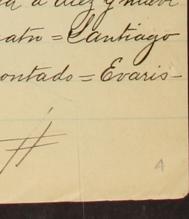 a diez y nueve
eatro = Santiago
ontado = Evaris-
4